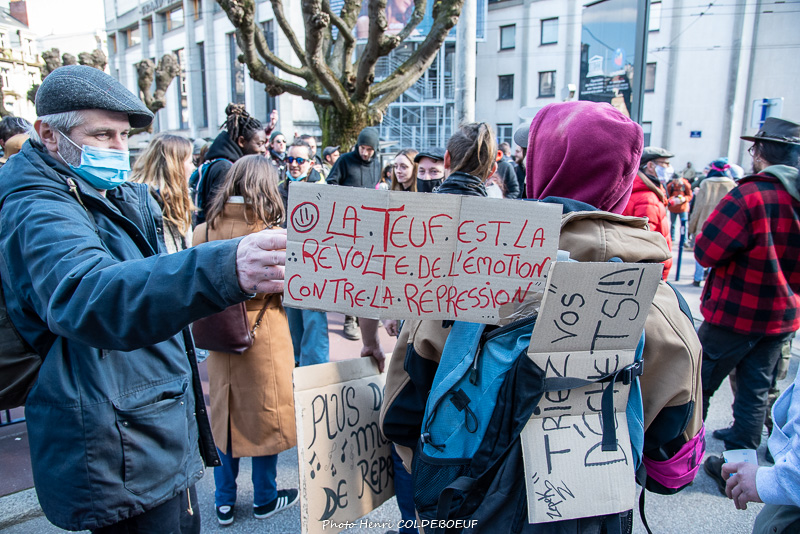 "LA TEUF EST LA
RÉVOLTE DE L'ÉMOTION
CONTRE LA RÉPRESSION"
"TRIEZ VOS
DÉCHETS!!
PLUS DE
DE RÉPR
Photo Henri COLDEBOEUF